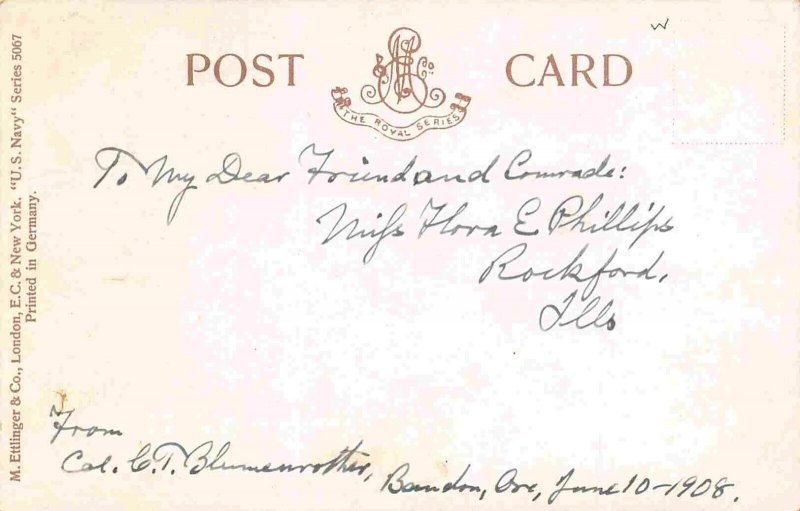 POST CARD
THE ROYAL SERIES
To My Dear Friend and Comrade:
Miss Flora E Phillips
Rockford,
Ills
From
Col. C.T. Blumenrother, Bandon, Ore, June 10-1908.
M. Ettlinger & Co., London, E.C. & New York. "U. S. Navy" Series 5067
Printed in Germany.